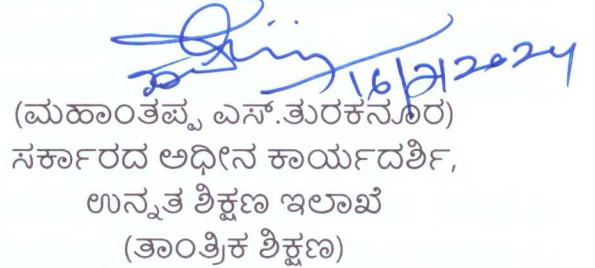 16/2/2024
(ಮಹಾಂತಪ್ಪ ಎಸ್.ತುರಕನೂರ)
ಸರ್ಕಾರದ ಅಧೀನ ಕಾರ್ಯದರ್ಶಿ,
ಉನ್ನತ ಶಿಕ್ಷಣ ಇಲಾಖೆ
(ತಾಂತ್ರಿಕ ಶಿಕ್ಷಣ)